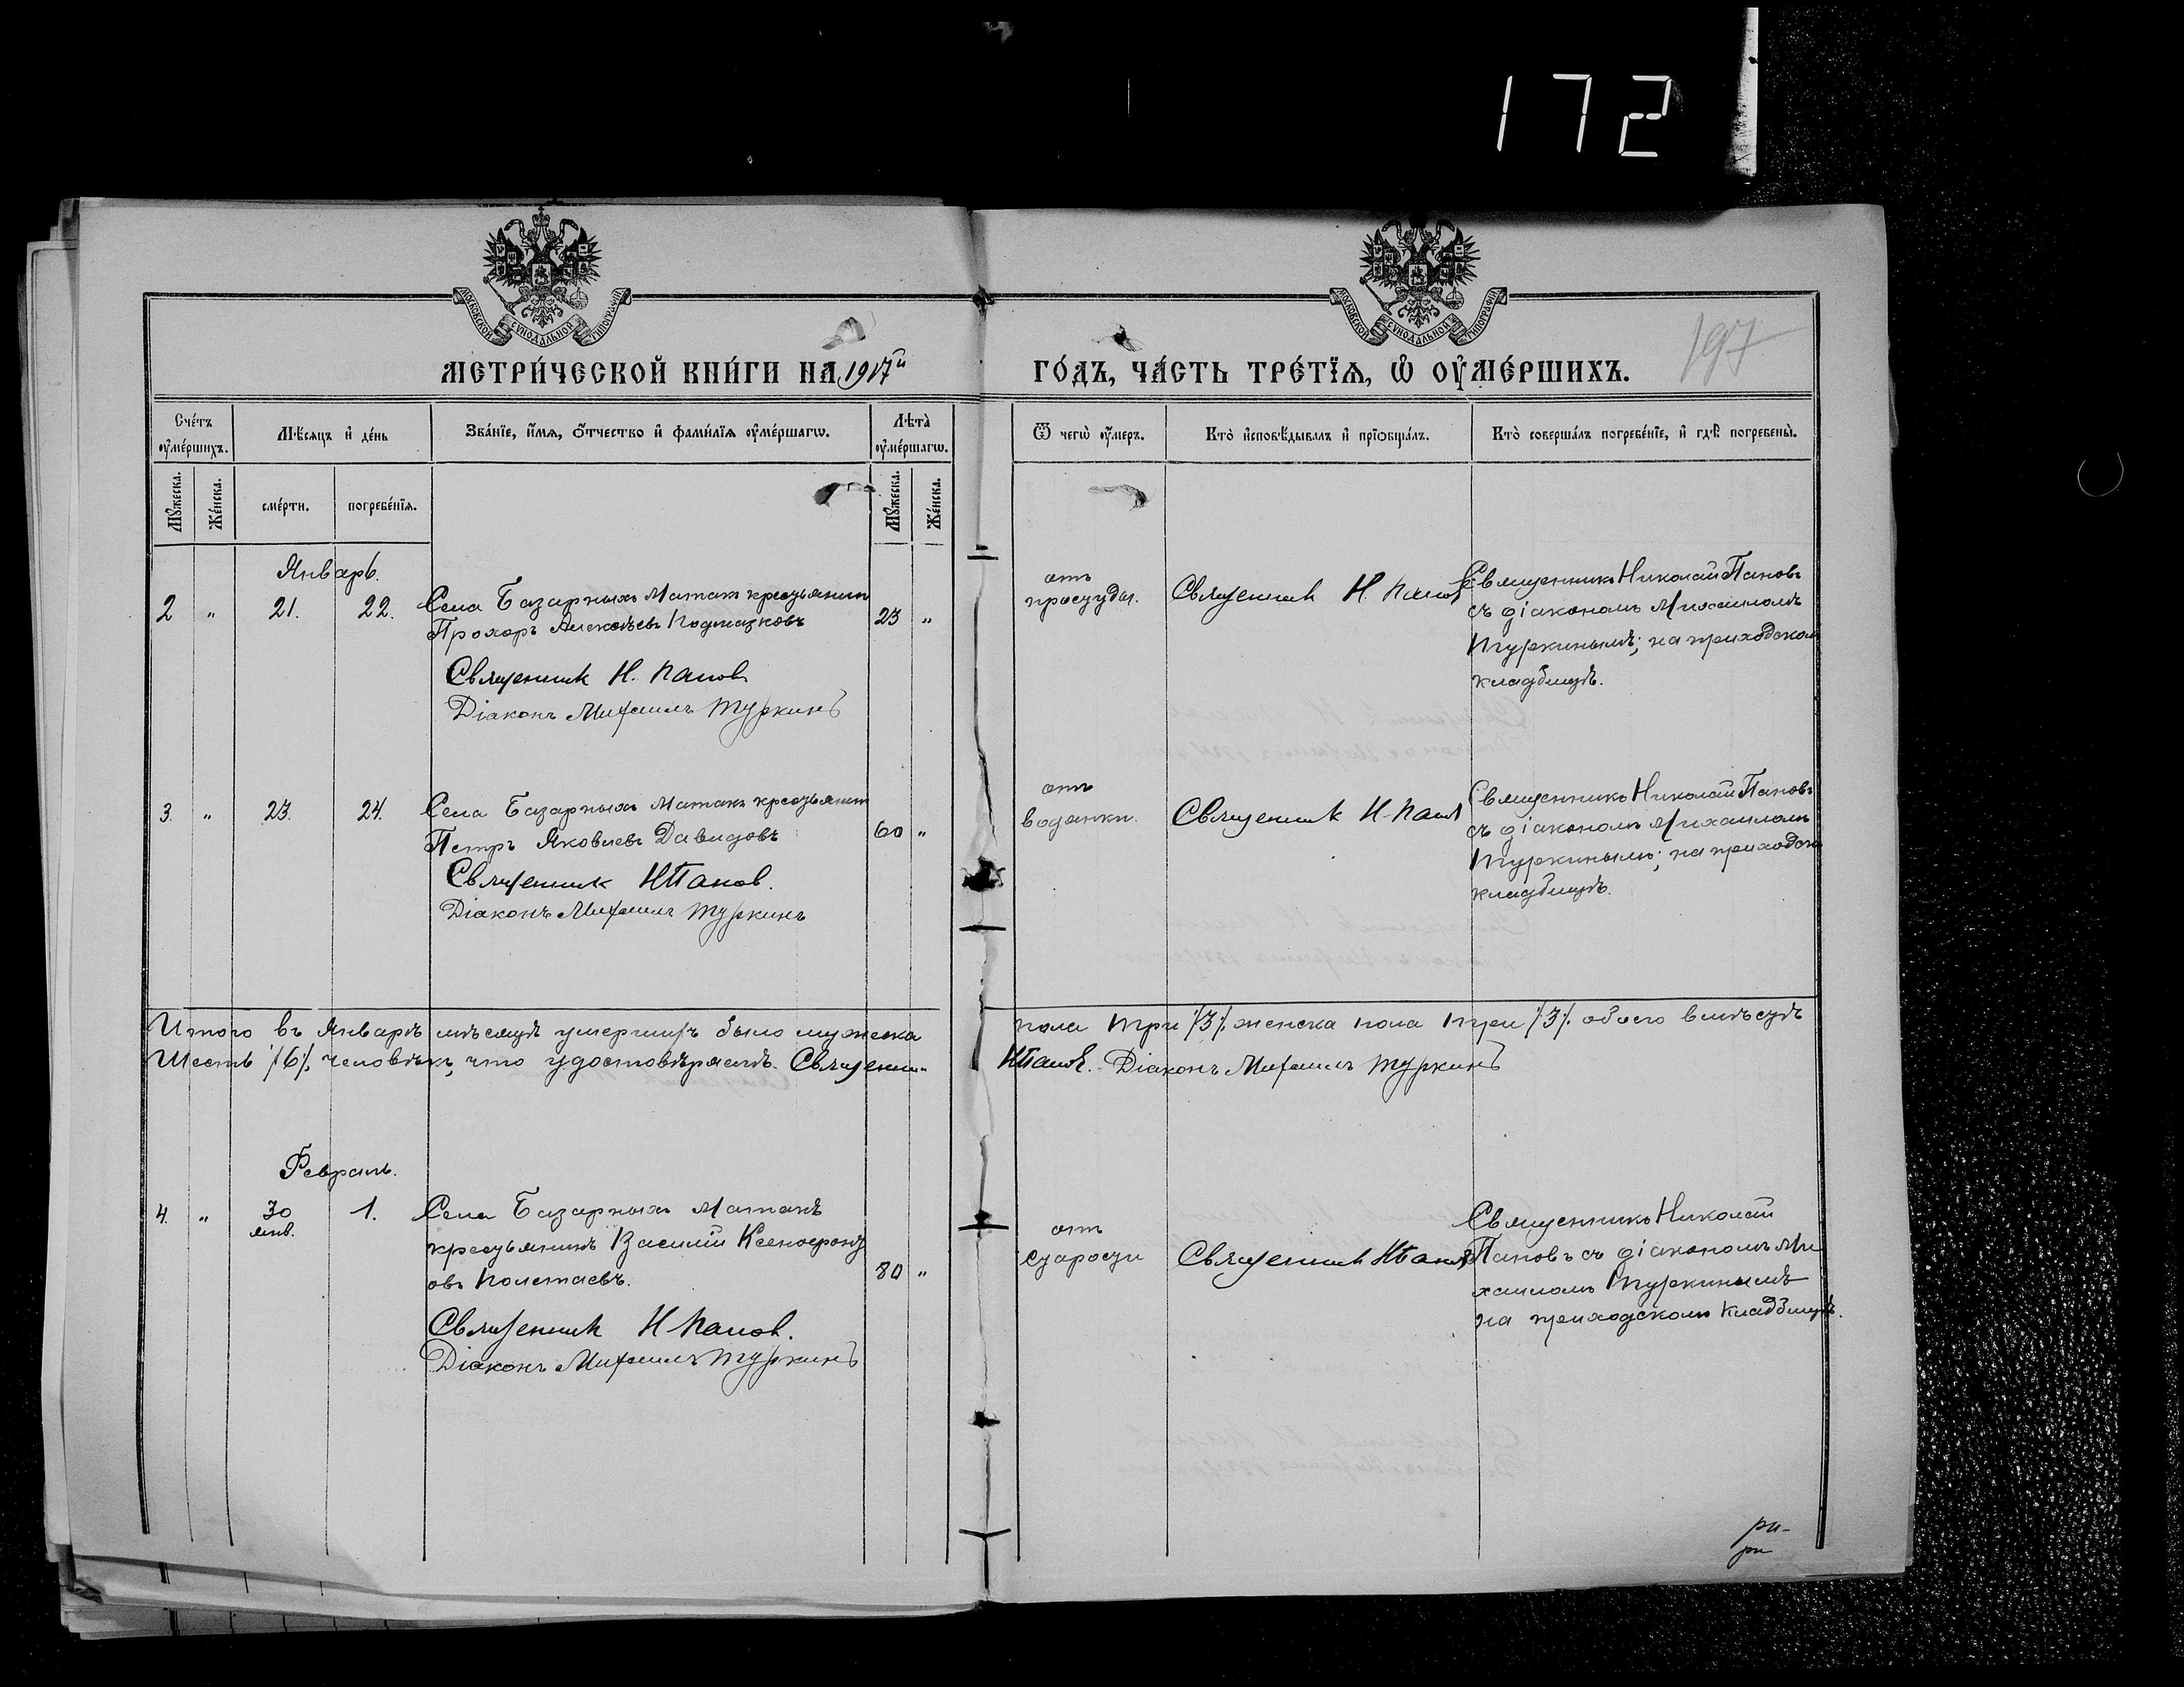 172
МОСКОВСКОЙ СѴНОДАЛЬНОЙ ТИПОГРАФІИ
МОСКОВСКОЙ СѴНОДАЛЬНОЙ ТИПОГРАФІИ
197
МЕТРИ́ЧЕСКОЙ КНИ́ГИ НА 1917й ГО́ДЪ, ЧА́СТЬ ТРЕ́ТЇѦ, Ѡ҆ ОУ҆МЕ́РШИХЪ.
Сче́тъ оу҆ме́ршихъ.
Мѣ́сяцъ и҆ де́нь
Зва́нїе, и҆́мѧ, ѻ҆́тчество и҆ фамѝлїѧ оу҆ме́ршагѡ.
Лѣ́та оу҆ме́ршагѡ.
Ѿ чегѡ̀ оу҆́меръ.
Кто̀ и҆сповѣ́дывалъ и҆ прїѡбща́лъ.
Кто̀ соверша́лъ погребе́нїе, и҆ гдѣ̀ погребены̀.
Мꙋ́жеска.
Же́нска.
сме́рти.
погребе́нїѧ.
Мꙋ́жеска.
Же́нска.
Январь.
2 " 21. 22. Села Базарныхъ Матакъ крестьянинъ
Прохоръ Алексѣевъ 23 "
Священникъ Н. Пановъ
Діаконъ Михаилъ Туркинъ
отъ
простуды.
Священникъ Н. Пановъ
Священникъ Николай Пановъ
съ діакономъ Михаиломъ
Туркинымъ; на приходскомъ
кладбищѣ.
3. " 23. 24. Села Базарныхъ Матакъ крестьянинъ
Петръ Яковлевъ Давыдовъ 60 "
Священникъ Н Пановъ.
Діаконъ Михаилъ Туркинъ
отъ
водянки.
Священникъ Н. Пановъ
Священникъ Николай Пановъ
съ діакономъ Михаиломъ
Туркинымъ; на приходском
кладбищѣ.
Итого въ Январѣ мѣсяцѣ умершихъ было мужеска пола три /3/. женска пола три /3/. обоего вмѣстѣ
Шесть /6/. человѣкъ, что удостовѣряемъ. Священни- Н Пановъ. Діаконъ Михаилъ Туркинъ
Февраль.
4. " 30 янв. 1. Села Базарныхъ Матакъ
крестьянинъ Василій Ксенофонт
овъ Полетаевъ. 80 "
Священникъ Н Пановъ.
Діаконъ Михаилъ Туркинъ
отъ
старости
Священникъ Н Пановъ
Священникъ Николай
Пановъ съ діакономъ Ми
хаиломъ Туркинымъ
на приходскомъ кладбищѣ.